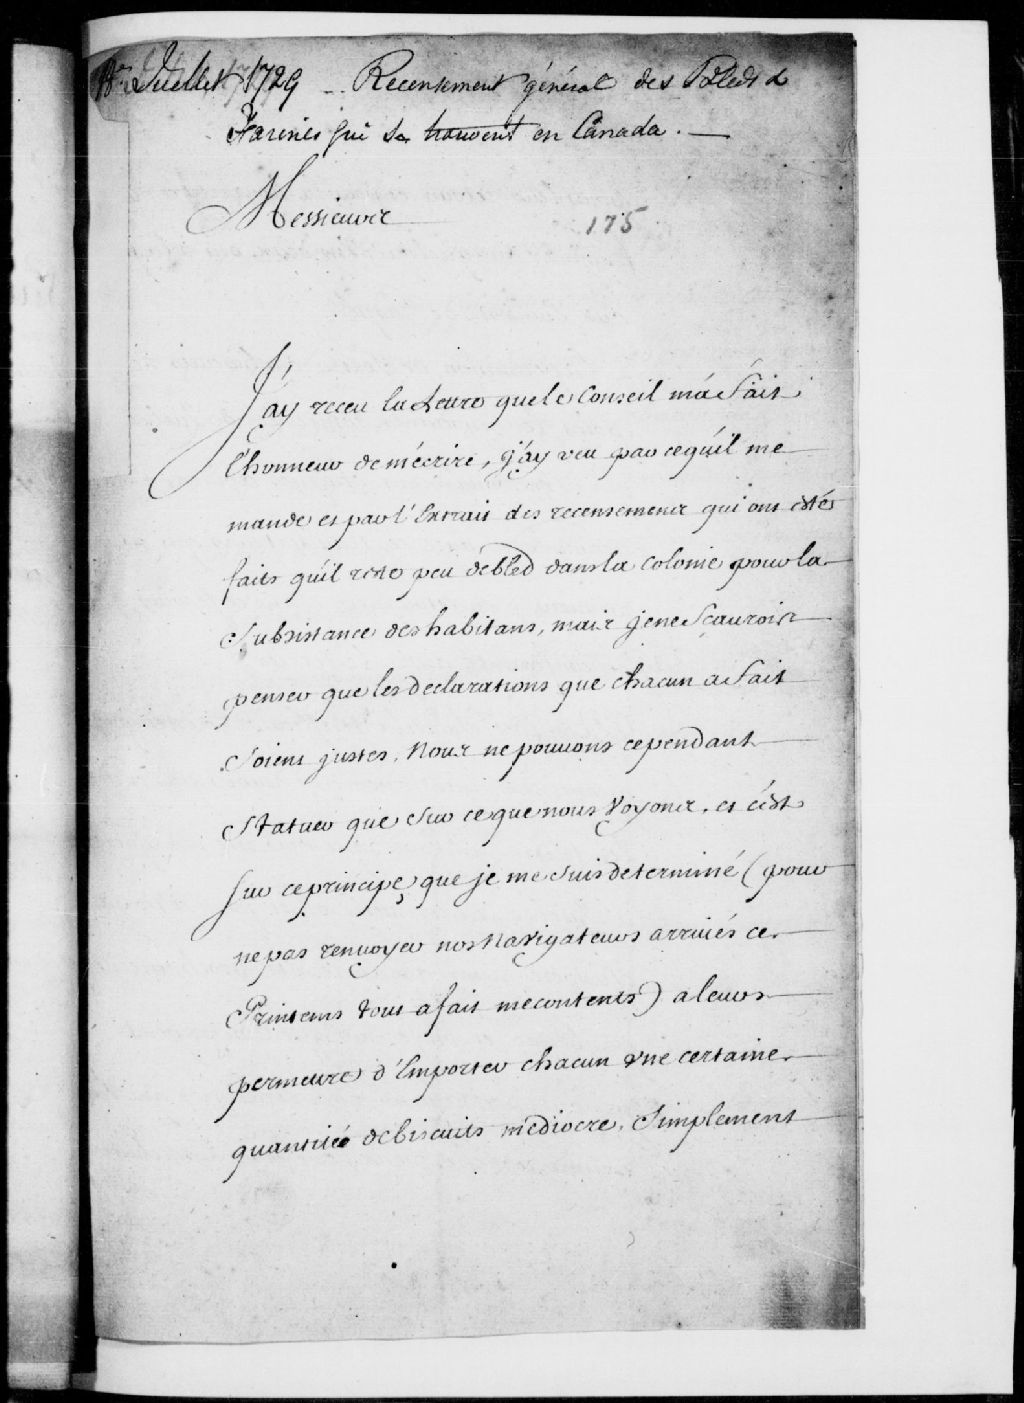 Juillet 1729 - Recensement général des Bleds &
Farines qui se trouvent en Canada. —
Messieurs
175
J'ay receu la Lettre que le Conseil m'a fait
l'honneur de m'écrire, j'ay veu par ce qu'il me
mande et par l'Extrait des recensements qui ont esté
faits qu'il reste peu de bled dans la Colonie pour la
Subsistance des habitans, mais je ne Sçaurois
penser que les declarations que chacun a fait
Soient justes. Nous ne pouvons cependant
Statuer que sur ce que nous Voyons, et c'est
sur ce principe, que je me suis determiné (pour
ne pas renvoyer nos Navigateurs arrivés ce
Printems tout a fait mecontents) a leurs
permettre d'Emporter chacun une certaine
quantité de biscuits mediocre, Simplement